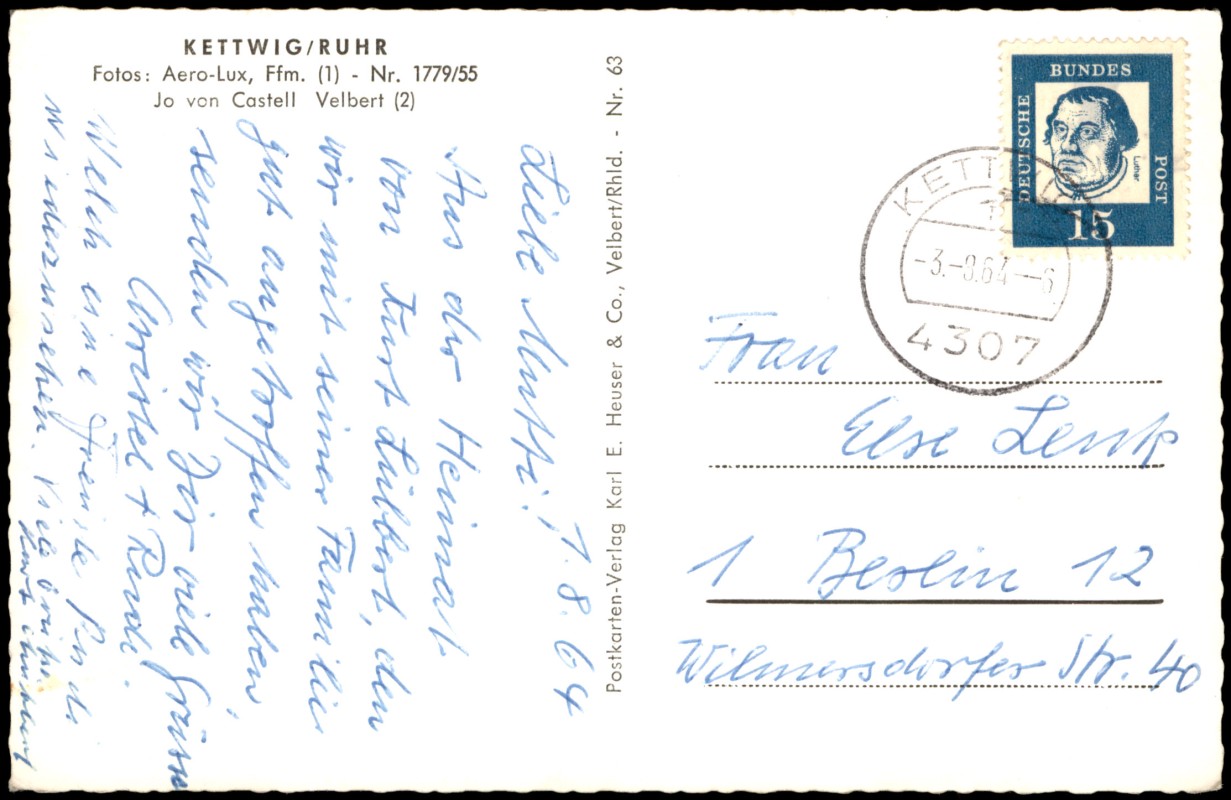 KETTWIG/RUHR
Fotos: Aero-Lux, Ffm. (1) - Nr. 1779/55
Jo von Castell Velbert (2)
Liebe Mutti! 1.8.64
Aus der Heimat
von Kurt Lübbert, den
wir mit seiner Familie
gut angetroffen haben,
senden wir Dir viele Grüsse
Christel + Rudi.
Welch eine Freude Rudi
wiederzusehen. Viele Grüße
Postkarten-Verlag Karl E. Heuser & Co., Velbert/Rhld. - Nr. 63
DEUTSCHE
BUNDES
POST
Luther
15
KETTWIG
-3.-8.64--6
4307
Frau
Else Lenk
1 Berlin 12
Wilmersdorfer Str. 40